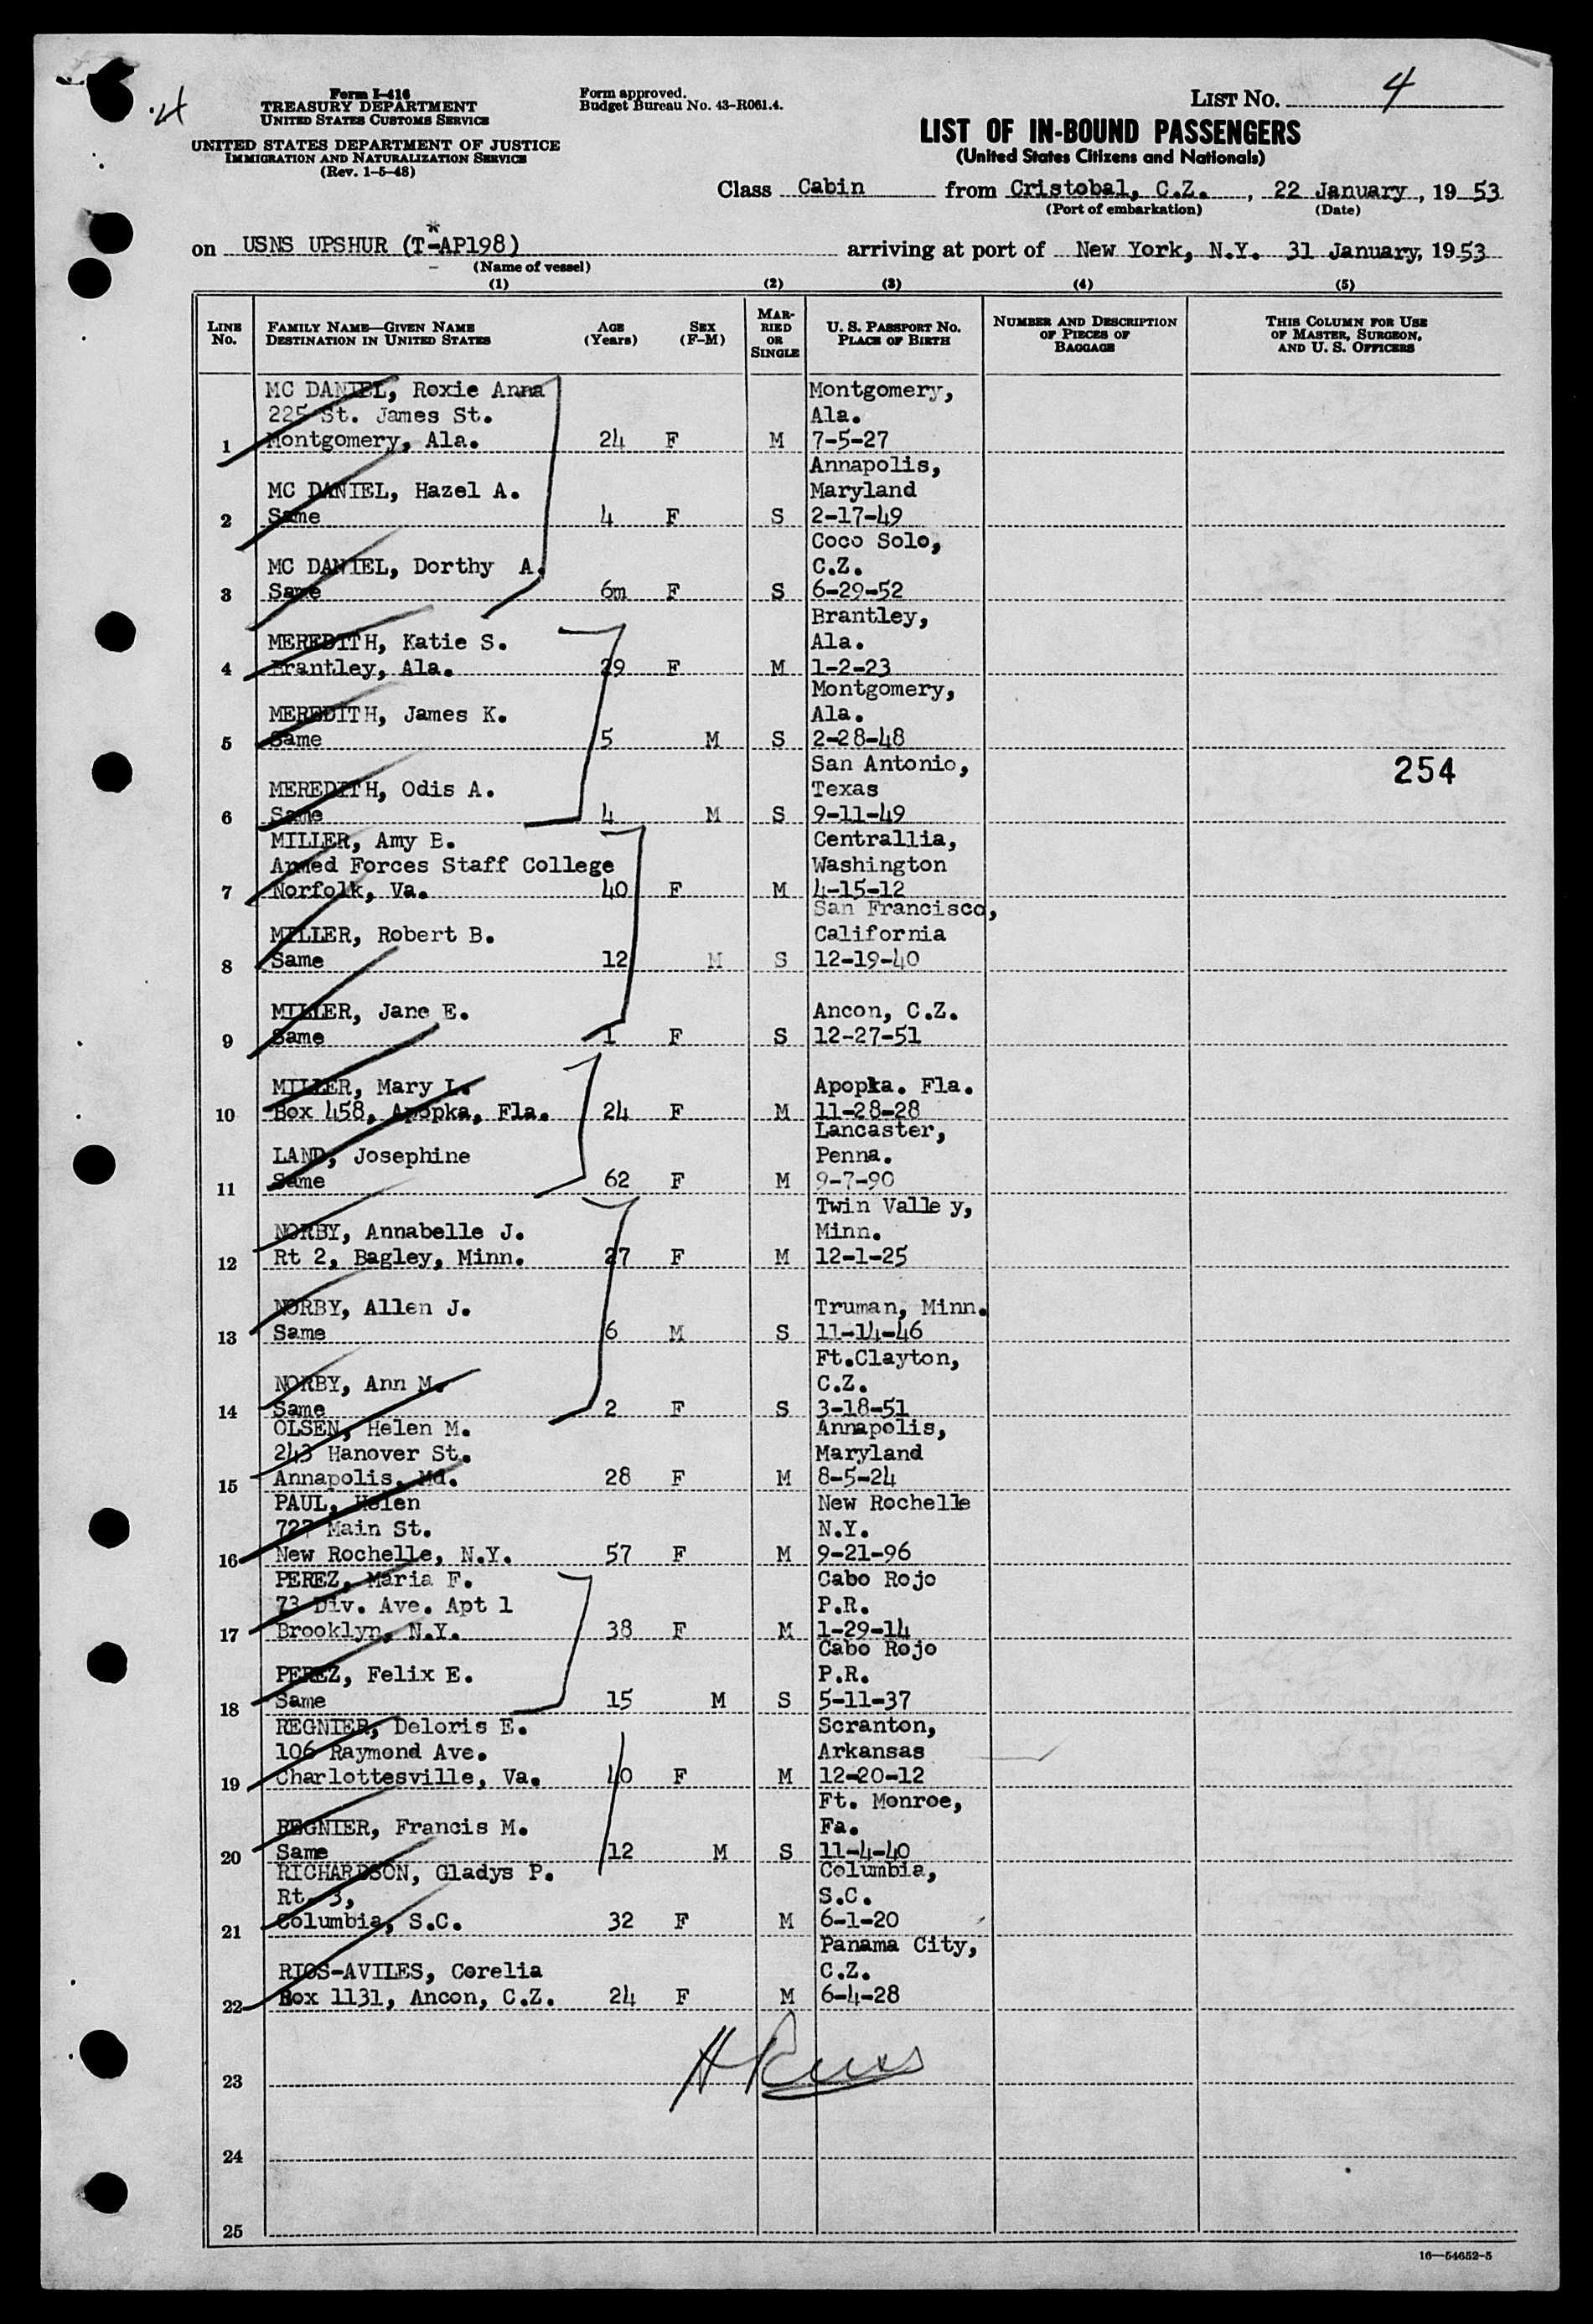 4
Form I-416
TREASURY DEPARTMENT
UNITED STATES CUSTOMS SERVICE
UNITED STATES DEPARTMENT OF JUSTICE
IMMIGRATION AND NATURALIZATION SERVICE
(Rev. 1-5-48)
Form approved.
Budget Bureau No. 43-R061.4.
LIST NO. 4
LIST OF IN-BOUND PASSENGERS
(United States Citizens and Nationals)
Class Cabin from Cristobal, C.Z., 22 January, 1953
(Port of embarkation) (Date)
*
on USNS UPSHUR (T-AP198) arriving at port of New York, N.Y. 31 January, 1953
(Name of vessel)
(1) (2) (3) (4) (5)
LINE NO. FAMILY NAME—GIVEN NAME DESTINATION IN UNITED STATES AGE (Years) SEX (F-M) MARRIED OR SINGLE U. S. PASSPORT NO. PLACE OF BIRTH NUMBER AND DESCRIPTION OF PIECES OF BAGGAGE THIS COLUMN FOR USE OF MASTER, SURGEON, AND U. S. OFFICERS
MC DANIEL, Roxie Anna Montgomery,
225 St. James St. Ala.
1 Montgomery, Ala. 24 F M 7-5-27
Annapolis,
MC DANIEL, Hazel A. Maryland
2 Same 4 F S 2-17-49
Coco Solo,
MC DANIEL, Dorthy A. C.Z.
3 Same 6m F S 6-29-52
Brantley,
MEREDITH, Katie S. Ala.
4 Brantley, Ala. 29 F M 1-2-23
Montgomery,
MEREDITH, James K. Ala.
5 Same 5 M S 2-28-48
San Antonio,
254
MEREDITH, Odis A. Texas
6 Same 4 M S 9-11-49
MILLER, Amy B. Centrallia,
Armed Forces Staff College Washington
7 Norfolk, Va. 40 F M 4-15-12
San Francisco,
MILLER, Robert B. California
8 Same 12 M S 12-19-40
MILLER, Jane E. Ancon, C.Z.
9 Same 1 F S 12-27-51
MILLER, Mary L. Apopka. Fla.
10 Box 458, Apopka, Fla. 24 F M 11-28-28
Lancaster,
LAND, Josephine Penna.
11 Same 62 F M 9-7-90
Twin Valle y,
NORBY, Annabelle J. Minn.
12 Rt 2, Bagley, Minn. 27 F M 12-1-25
NORBY, Allen J. Truman, Minn.
13 Same 6 M S 11-14-46
Ft.Clayton,
NORBY, Ann M. C.Z.
14 Same 2 F S 3-18-51
OLSEN, Helen M. Annapolis,
243 Hanover St. Maryland
15 Annapolis, Md. 28 F M 8-5-24
PAUL, Helen New Rochelle
727 Main St. N.Y.
16 New Rochelle, N.Y. 57 F M 9-21-96
PEREZ, Maria F. Cabo Rojo
73 Div. Ave. Apt 1 P.R.
17 Brooklyn, N.Y. 38 F M 1-29-14
Cabo Rojo
PEREZ, Felix E. P.R.
18 Same 15 M S 5-11-37
REGNIER, Deloris E. Scranton,
106 Raymond Ave. Arkansas
19 Charlottesville, Va. 40 F M 12-20-12
Ft. Monroe,
REGNIER, Francis M. Fa.
20 Same 12 M S 11-4-40
RICHARDSON, Gladys P. Columbia,
Rt. 3, S.C.
21 Columbia, S.C. 32 F M 6-1-20
Panama City,
RIOS-AVILES, Corelia C.Z.
22 Box 1131, Ancon, C.Z. 24 F M 6-4-28
23
24
25
16—54652-5